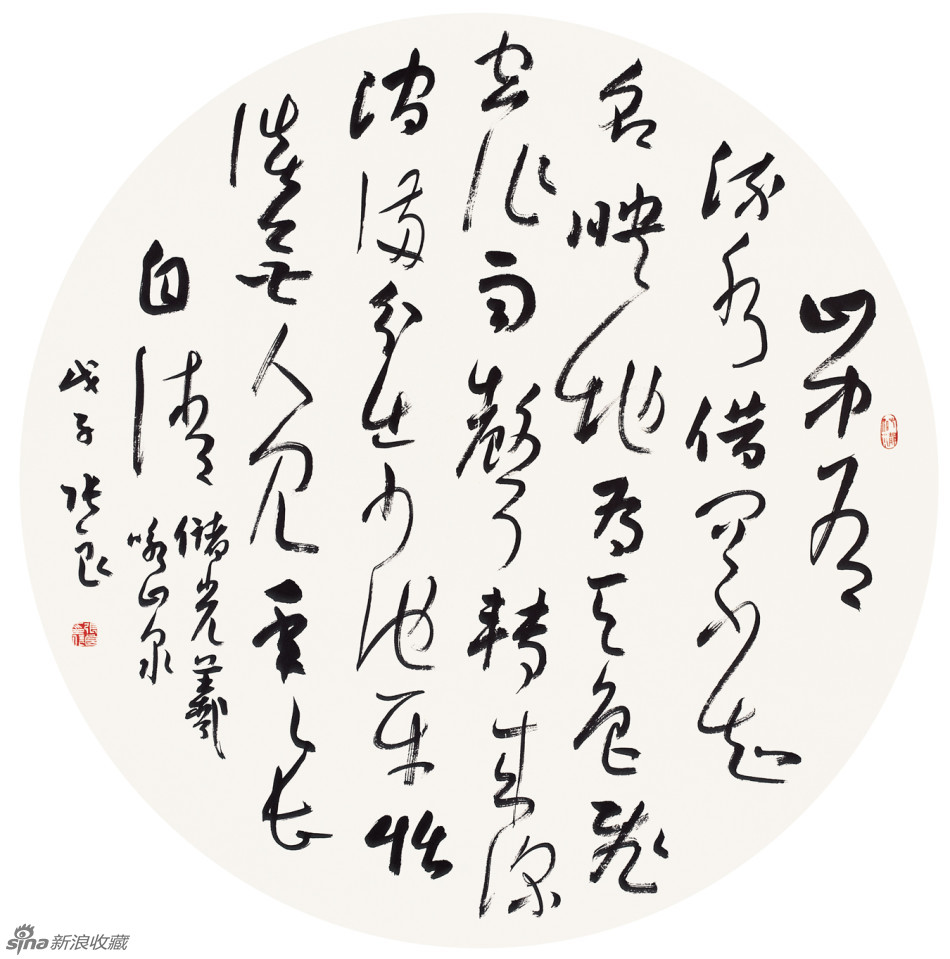 山中有
流水借问不知
名映地为天色飛
空作雨聲轉来深
澗滿分出小池平恬
澹无人見年々长
自清
儲光羲
咏山泉
戊子张良
sina新浪收藏